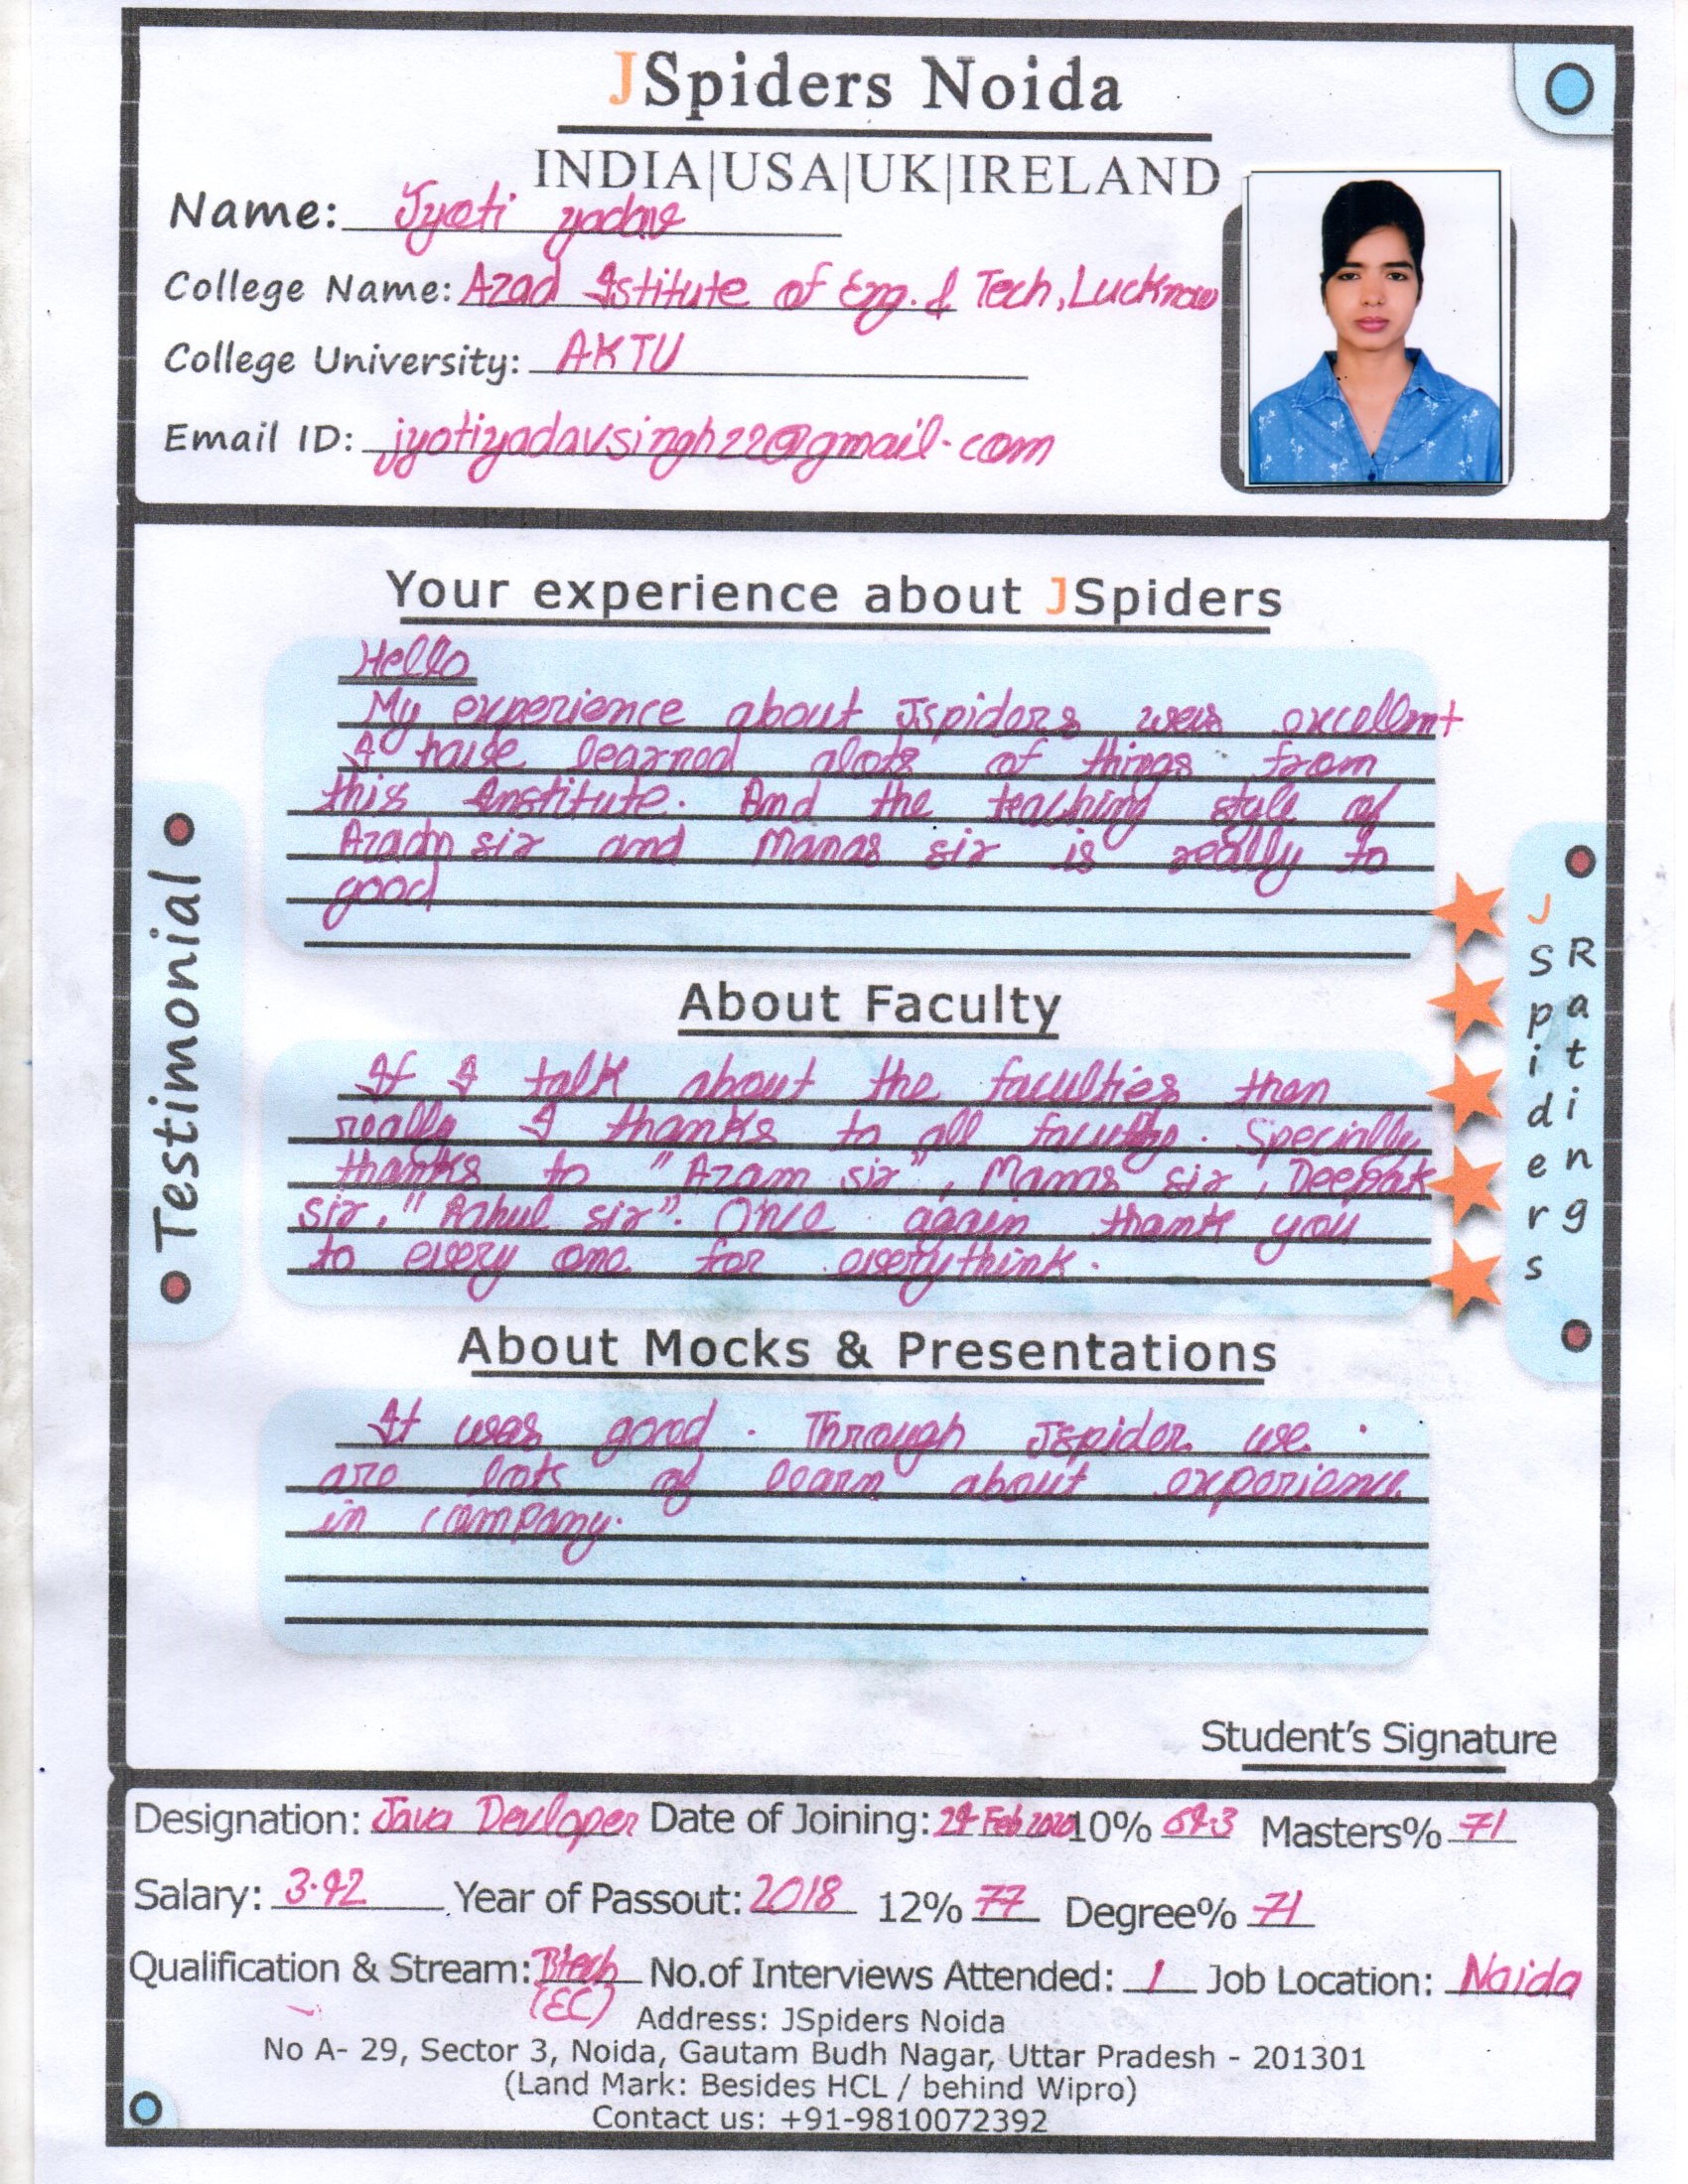 JSpiders Noida
INDIA|USA|UK|IRELAND
Name: Jyoti yadav
College Name: Azad Istitute of Eng. & Tech, Lucknow
College University: AKTU
Email ID: jyotiyadavsingh22@gmail.com
Your experience about JSpiders
Hello
My experience about Jspiders was excellent
I have learned alots of things from
this Institute. And the teaching style of
Azam sir and Manas sir is really to
good
About Faculty
If I talk about the faculties then
really I thanks to all faculty. Specially
thanks to "Azam sir", Manas sir, Deepak
sir, "Rahul sir". Once again thank you
to every one for everythink.
About Mocks & Presentations
It was good. Through Jspider we
are lots of learn about experience
in company.
Testimonial
JSpiders
Rating
Student's Signature
Designation: Java Devloper Date of Joining: Feb 2020 10% Masters% 71
Salary: Year of Passout: 2018 12% 77 Degree% 71
Qualification & Stream: Btech No.of Interviews Attended: 1 Job Location: Noida
(EC)
Address: JSpiders Noida
No A- 29, Sector 3, Noida, Gautam Budh Nagar, Uttar Pradesh - 201301
(Land Mark: Besides HCL / behind Wipro)
Contact us: +91-9810072392